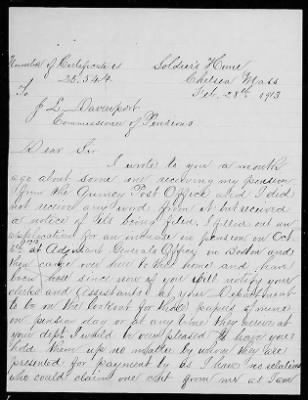 Number of Certificates Soldier's Home
25.344 Chelsea Mass
To Feb. 28th 1913
J L Davenport
Commissioner of Pensions
Dear Sir
I wrote to you a month
ago about some one receiving my pension
from the Quincy Post Office and I did
not receive any word from it but received
a notice of its being filed, I filled out an
application for an increase in pension on Oct
at Adjutant Generals Office, in Boston and
they came over here to this home and have
been here since now if you will notify your
clerks and assistants at your Department
to be on the lookout for those papers of mine
on pension day or at any time they arrive at
your dept. I would be very pleased to have you
hold them up no matter by whom they are
presented for payment by as I have no relations
who could claim one cent from me as I am